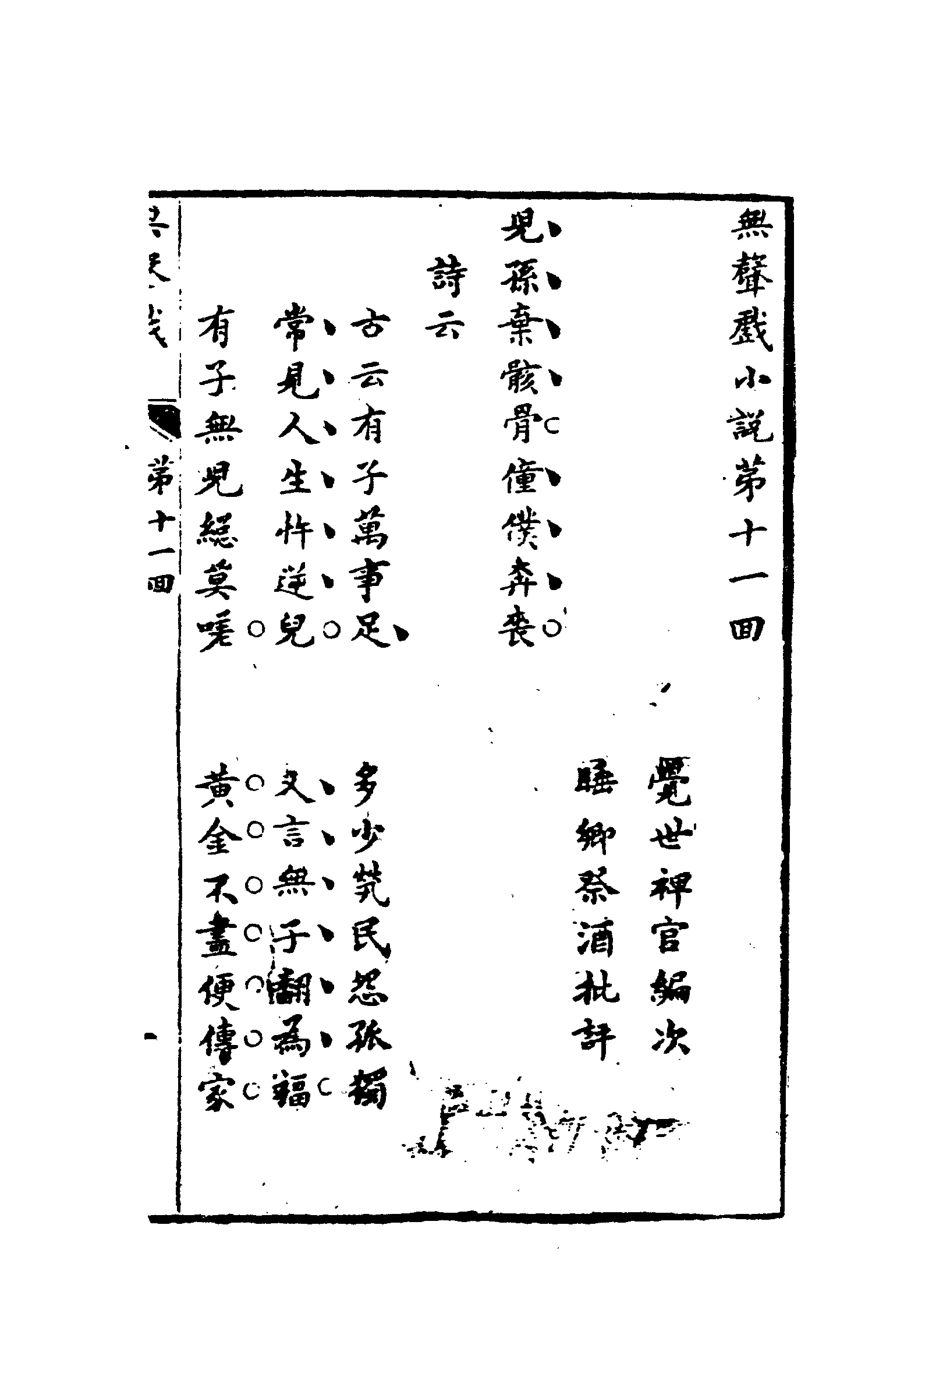 無聲戲小説第十一回
覺世稗官編次
睡鄉祭酒批評
兒孫棄骸骨僮僕奔喪
詩云
古云有子萬事足　多少煢民怨孤獨
常見人生忤逆兒　又言無子翻為福
有子無兒總莫嗟　黃金不盡便傳家
無聲戲　第十一回　一